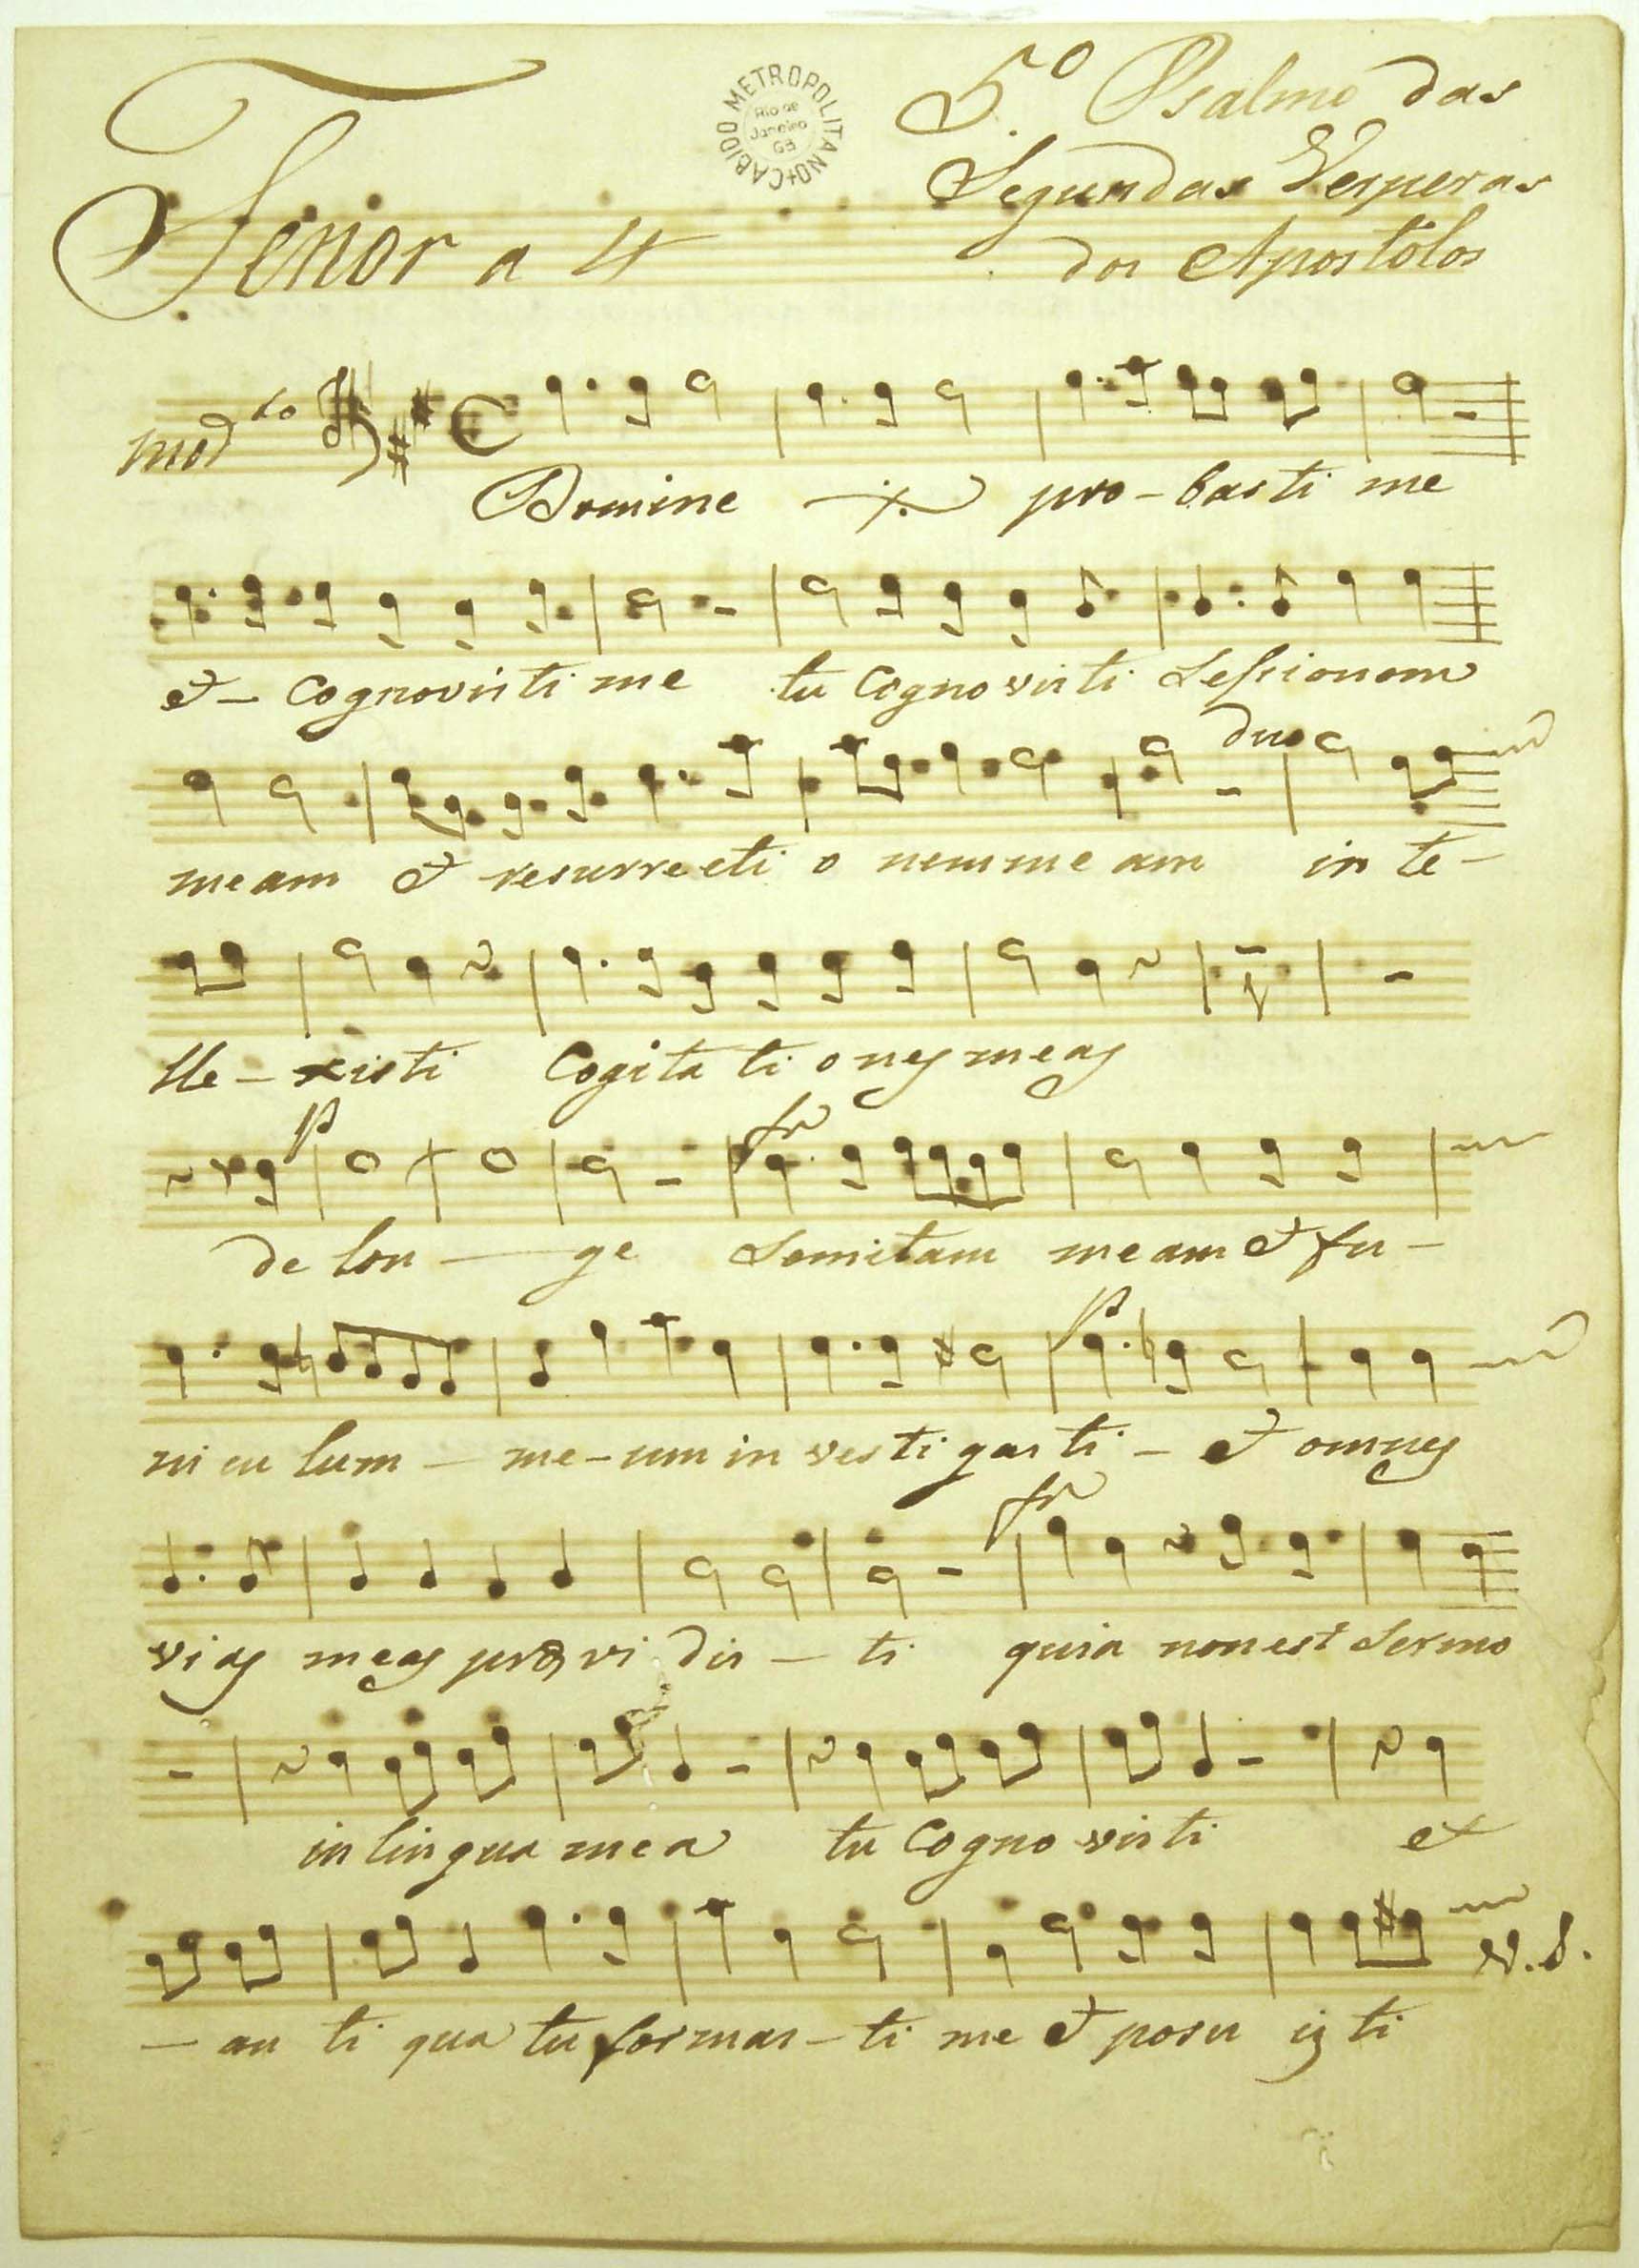 CABIDO METROPOLITANO
Rio de
Janeiro
GB
5.º Psalmo das
Segundas Vesperas
dos Apostolos
Tenor a 4
Mod.to
Domine ·/· pro-basti me
et - Cognovisti me tu Cognovisti Sessionem
duo
meam et resurrecti o nem me am in te-
lle-xisti Cogita ti ones meas
p fr
de lon - ge Semitam meam et fu-
p
ni cu lum - me-um in ves ti gas ti - et omnes
fr
vias meas prævi dis - ti quia non est Sermo
in lingua mea tu Cogno visti et
V. S.
- an ti qua tu formas-ti me et posu is ti